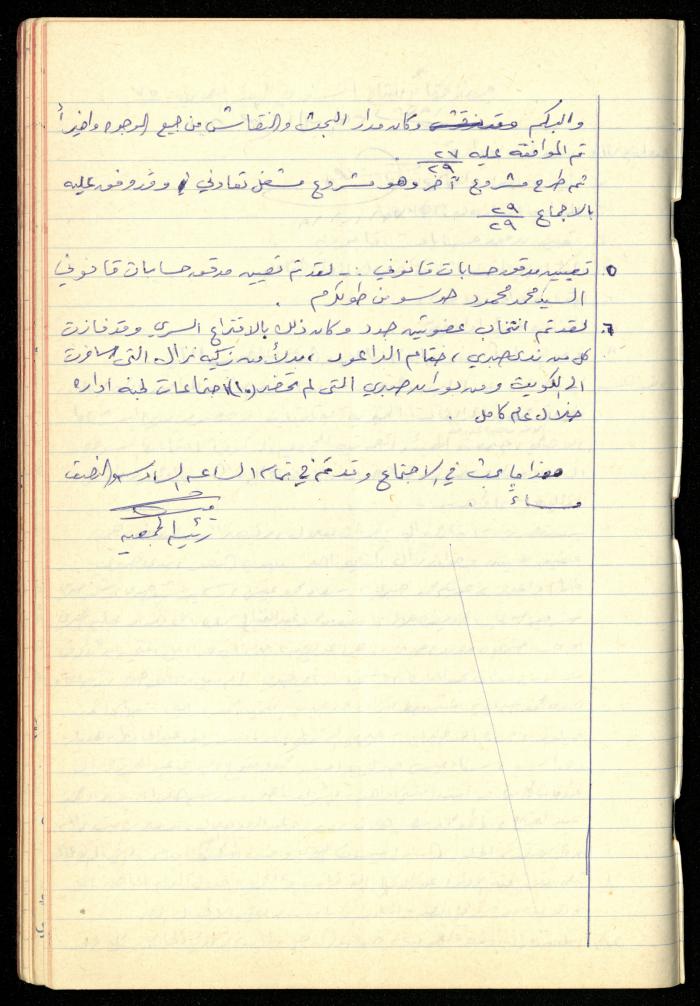 والبكم وكان مدار البحث والنقاش من جميع الوجوه واخيراً
تم الموافقة عليه ٢٧/٢٩ .
ثم طرح مشروع آخر وهو مشروع مشغل تعاوني وقد وفق عليه
بالاجماع ٢٩/٢٩
٥ تعيين مدقق حسابات قانوني :- لقد تم تعيين مدقق حسابات قانوني
السيد محمد محمود من طولكرم .
٦. لقد تم انتخاب عضوتين جدد وكان ذلك بالاقتراع السري وقد فازت
كل من ندى صبري ، ختام الداعور ، بدلاً من زكيه نزال التي سافرت
الى الكويت ومن صبري التي لم تحضر (١٠) اجتماعات لجنه اداره
خلال عام كامل
هذا ما بحث في الاجتماع وقد تم في تمام الساعه السادسه والنصف
مساءً
رئيسة الجمعيه